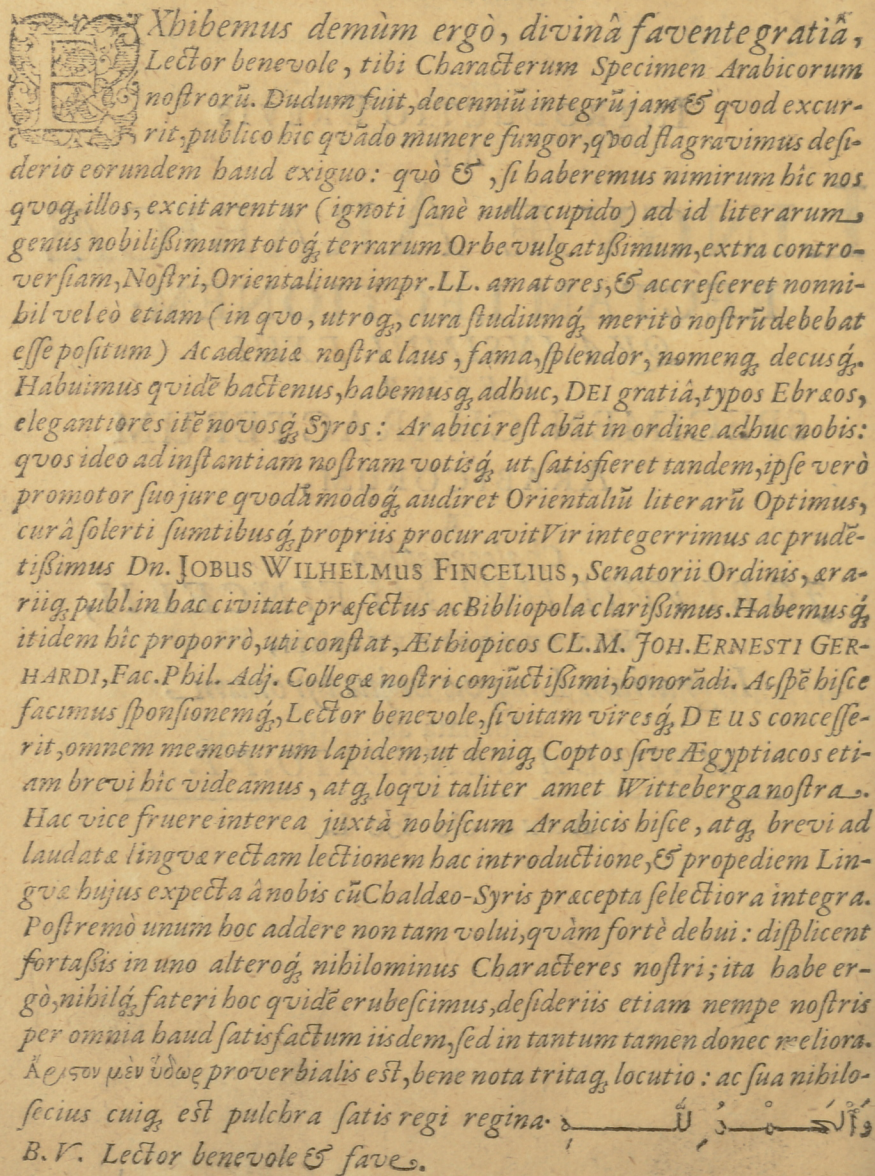 EXhibemus demùm ergò, divinâ favente gratiâ,
Lector benevole, tibi Characterum Specimen Arabicorum
noſtrorū. Dudum fuit, decenniū integrū jam & qvod excur-
rit, publico hîc qvādo munere fungor, qvod flagravimus deſi-
derio eorundem haud exiguo: qvò &, ſi haberemus nimirum hîc nos
qvoq́; illos, excitarentur (ignoti ſanè nulla cupido) ad id literarum
genus nobilißimum totoq́; terrarum Orbe vulgatißimum, extra contro-
verſiam, Noſtri, Orientalium impr. LL. amatores, & accreſceret nonni-
hil vel eò etiam (in qvo, utroq;, cura ſtudiumq́; meritò noſtrū debebat
eſſe poſitum) Academiæ noſtræ laus, fama, ſplendor, nomenq; decusq́;.
Habuimus qvidē hactenus, habemusq; adhuc, DEI gratiâ, typos Ebræos,
elegantiores itē novosq́; Syros: Arabici reſtabāt in ordine adhuc nobis:
qvos ideo ad inſtantiam noſtram votisq́; ut ſatisfieret tandem, ipſe verò
promotor ſuo jure qvodā modoq́; audiret Orientaliū literarū Optimus,
curâ ſolerti ſumtibusq́; propriis procuravit Vir integerrimus ac prudē-
tißimus Dn. JOBUS WILHELMUS FINCELIUS, Senatorii Ordinis, æra-
riiq; publ. in hac civitate præfectus ac Bibliopola clarißimus. Habemusq́;
itidem hîc proporrò, uti conſtat, Æthiopicos CL. M. JOH. ERNESTI GER-
HARDI, Fac. Phil. Adj. Collegæ noſtri conjūctißimi, honorādi. Ac ſpē hiſce
facimus ſponſionemq́;, Lector benevole, ſi vitam viresq́; DEUS conceſſe-
rit, omnem me moturum lapidem, ut deniq; Coptos ſive Ægyptiacos eti-
am brevi hîc videamus, atq; loqvi taliter amet Witteberga noſtra.
Hac vice fruere interea juxtà nobiſcum Arabicis hiſce, atq; brevi ad
laudatæ lingvæ rectam lectionem hac introductione, & propediem Lin-
gvæ hujus expecta â nobis cū Chaldæo-Syris præcepta ſelectiora integra.
Poſtremò unum hoc addere non tam volui, qvàm fortè debui: diſplicent
fortaßis in uno alteroq́; nihilominus Characteres noſtri; ita habe er-
gò, nihilq́; fateri hoc qvidē erubeſcimus, deſideriis etiam nempe noſtris
per omnia haud ſatisfactum iisdem, ſed in tantum tamen donec meliora.
Ἄριστον μὲν ὕδωρ proverbialis eſt, bene nota tritaq; locutio: ac ſua nihilo-
ſecius cuiq; eſt pulchra ſatis regi regina.
B. V. Lector benevole & fave.